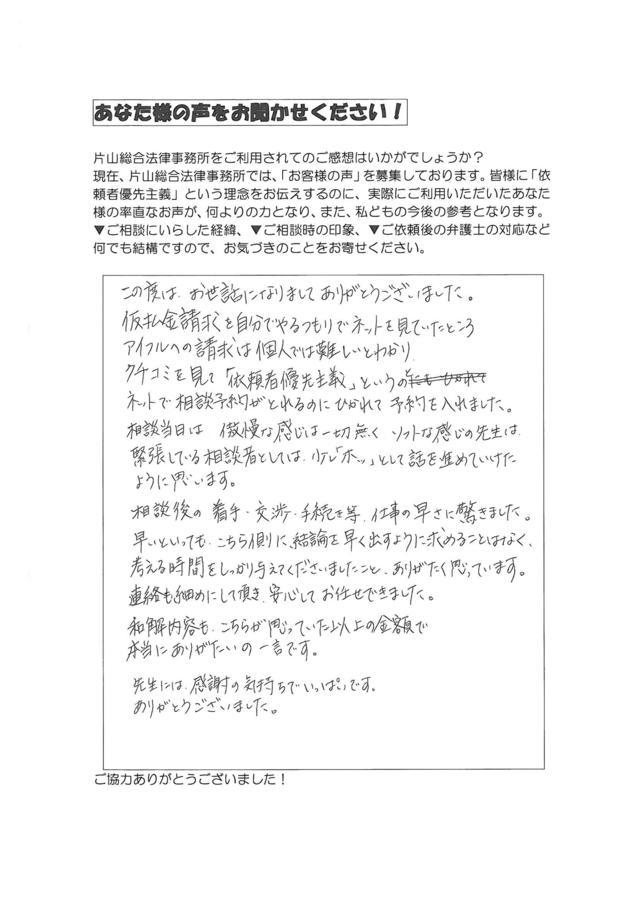 あなた様の声をお聞かせください！
片山総合法律事務所をご利用されてのご感想はいかがでしょうか？
現在、片山総合法律事務所では、「お客様の声」を募集しております。皆様に「依
頼者優先主義」という理念をお伝えするのに、実際にご利用いただいたあなた
様の率直なお声が、何よりの力となり、また、私どもの今後の参考となります。
▼ご相談にいらした経緯、▼ご相談時の印象、▼ご依頼後の弁護士の対応など
何でも結構ですので、お気づきのことをお寄せください。
この度は、お世話になりましてありがとうございました。
仮払金請求を自分でやるつもりでネットを見ていたところ
アイフルへの請求は個人では難しいとわかり
クチコミを見て「依頼者優先主義」というの
ネットで相談予約がとれるのにひかれて予約を入れました。
相談当日は、傲慢な感じは一切無く、ソフトな感じの先生は、
緊張している相談者としては、少し「ホッ」として話を進めていけた
ように思います。
相談後の着手・交渉・手続き等、仕事の早さに驚きました。
早いといっても、こちら側に、結論を早く出すように求めることはなく、
考える時間をしっかり与えてくださいましたこと、ありがたく思っています。
連絡も細めにして頂き、安心してお任せできました。
和解内容も、こちらが思っていた以上の金額で
本当にありがたいの一言です。
先生には、感謝の気持ちでいっぱいです。
ありがとうございました。
ご協力ありがとうございました！